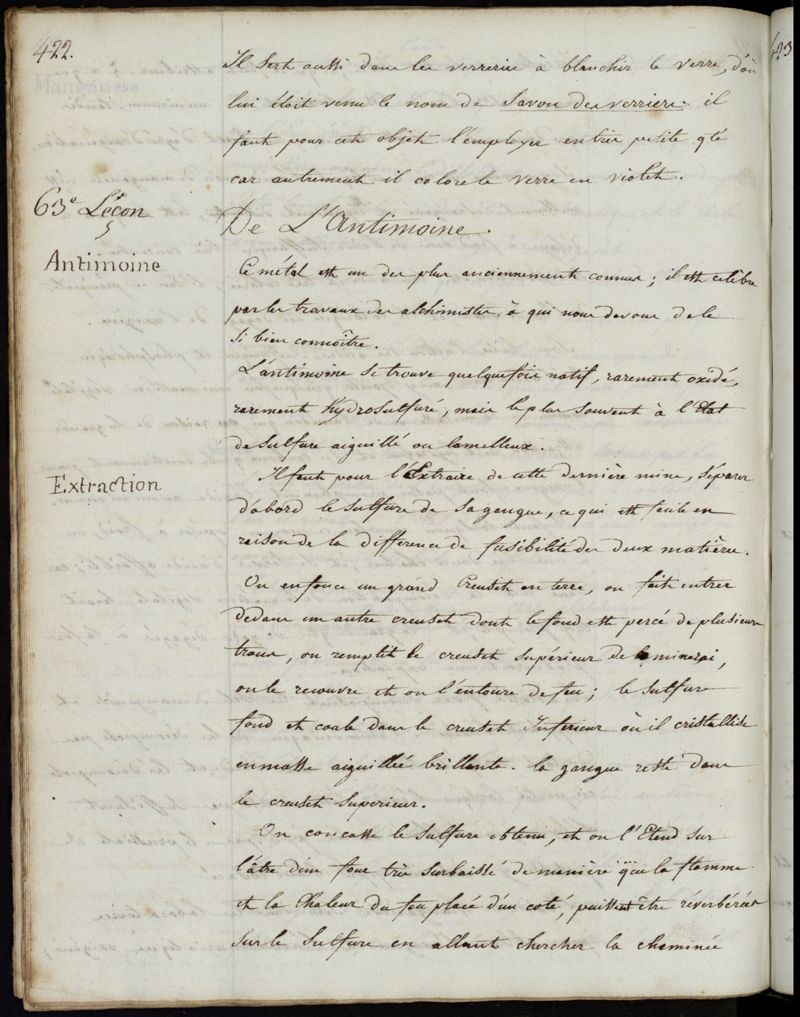 422.
423
Manganese
Il sert aussi dans les verreries à blanchir le verre, d'où
lui étoit venu le nom de Savon des verriers. il
faut pour cet objet l'employer en très petite q'té
car autrement il colore le verre en violet.
63e Leçon
De L'Antimoine.
Antimoine
Ce métal est un des plus anciennement connus ; il est célèbre
par les travaux des alchimistes à qui nous devons de le
si bien connoître.
L'antimoine se trouve quelquefois natif, rarement oxidé,
rarement hydrosulfuré, mais le plus souvent à l'Etat
de sulfure aiguillé ou lamelleux.
Extraction
Il faut pour l'Extraire de cette dernière mine, séparer
d'abord le sulfure de sa gangue, ce qui est facile en
raison de la différence de fusibilité des deux matières.
On enfonce un grand Creuset en terre, on fait entrer
dedans un autre creuset dont le fond est percé de plusieurs
trous, on remplit le creuset supérieur de minerai,
on le recouvre et on l'entoure de feu ; le sulfure
fond et coule dans le creuset Inferieur où il cristallise
en masse aiguillée brillante. la gangue reste dans
le creuset superieur.
On concasse le sulfure obtenu, et on l'Etend sur
l'âtre d'un four très surbaissé de manière que la flamme
et la Chaleur du feu placé d'un coté, puissent être réverbérées
sur le sulfure en allant chercher la cheminée